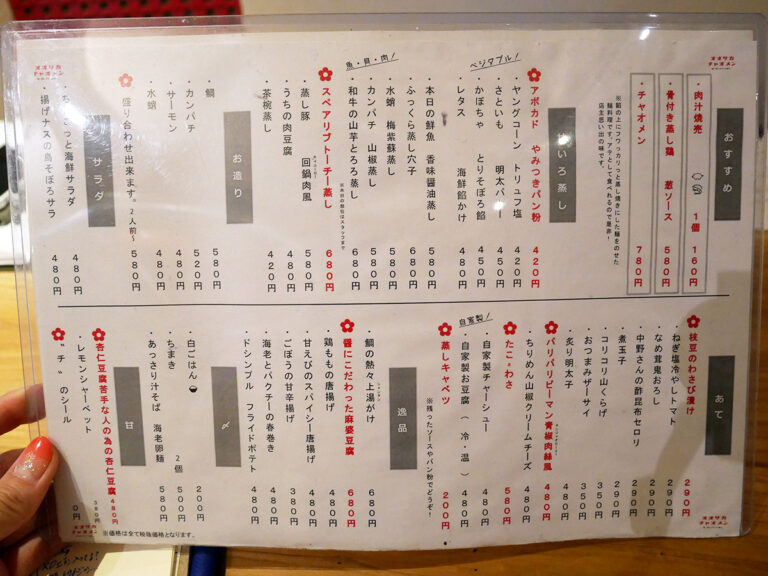 オオサカ
チャオメン
おすすめ
・肉汁焼売 1個 160円
・骨付き蒸し鶏 葱ソース 580円
・チャオメン 780円
※餡の上にフワッカリっと蒸し焼きにした麺をのせた
麺料理です。アテとして食べれるので是非!
店主思い出の味です。
いろ蒸し
ベジタブル!
アボカド やみつきパン粉 420円
・ヤングコーン トリュフ塩 420円
・さといも 明太バター 450円
・かぼちゃ とりそぼろ餡 450円
・レタス 海鮮餡かけ 480円
魚・貝・肉!
・本日の鮮魚 香味醤油蒸し 580円
・ふっくら蒸し穴子 680円
・水蛸 梅紫蘇蒸し 580円
・カンパチ 山椒蒸し 580円
・和牛の山芋とろろ蒸し 680円
スペアリブトーチー蒸し 680円
※本日の部位はスタッフまで
・蒸し豚 回鍋肉風 580円
・うちの肉豆腐 480円
・茶椀蒸し 420円
お造り
・鯛 580円
・カンパチ 520円
・サーモン 480円
・水蛸 480円
盛り合わせ出来ます。2人前~ 580円
サラダ
・ちょこっと海鮮サラダ 480円
・揚げナスの鳥そぼろサラ 480円
あて
枝豆のわさび漬け 290円
・ねぎ塩冷やしトマト 290円
・なめ茸鬼おろし 290円
・中野さんの酢昆布セロリ 290円
・煮玉子 290円
・コリコリ山くらげ 350円
・おつまみザーサイ 350円
・炙り明太子 480円
パリパリピーマン青椒肉絲風 480円
・ちりめん山椒クリームチーズ 480円
たこ・わさ 580円
自家製!
・自家製チャーシュー 480円
・自家製お豆腐(冷・温) 480円
蒸しキャベツ 200円
※残ったソースやパン粉でどうぞ!
逸品
・鯛の熱々上湯がけ 680円
醤にこだわった麻婆豆腐 680円
・鶏ももの唐揚げ 480円
・甘えびのスパイシー唐揚げ 480円
・ごぼうの甘辛揚げ 380円
・海老とパクチーの春巻き 480円
・ドシンプル フライドポテト 480円
〆
・白ごはん 200円
・ちまき 2個 500円
・あっさり汁そば 海老卵麺 580円
甘
杏仁豆腐苦手な人の為の杏仁豆腐 480円
・レモンシャーベット 380円
・〝チ〟のシール 0円
※価格は全て税抜価格となります。
オオサカ
チャオメン
オオサカ
チャオメン